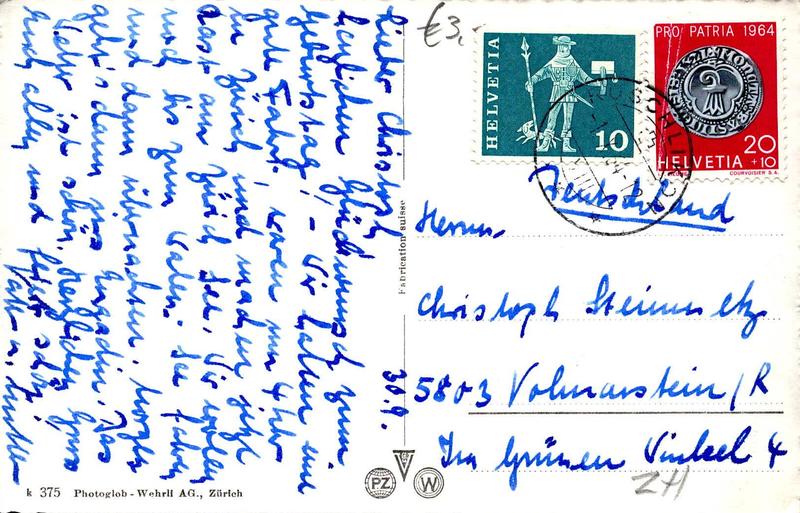 Lieber Christoph 30.9.
herzlichen Glückwunsch zum
Geburtstag! - Wir hatten eine
gute Fahrt, waren um 4 Uhr
in Zürich und machen jetzt
Rast am Zürich See. Wir wollen
noch bis zum Walen-See fahren
und dann übernachten. Morgen
geht's dann ins Engadin. Das
Wetter ist schön. Herzliche Grüsse
Euch allen und
Vati u. Mutti
k 375 Photoglob-Wehrli AG., Zürich
Fabrication suisse
PZ W
€3,-
HELVETIA
10
PRO PATRIA 1964
20
HELVETIA +10
COURVOISIER S.A.
RÜSCHLIKON
Deutschland
Herrn
Christoph Steinmetz
5803 Volmarstein/R
Im Grünen Winkel 4
ZH